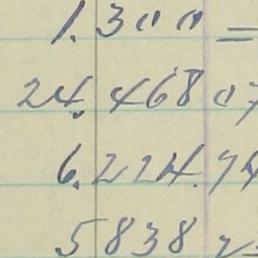 1.300 =
24.468 07
6.224.74
5838 25